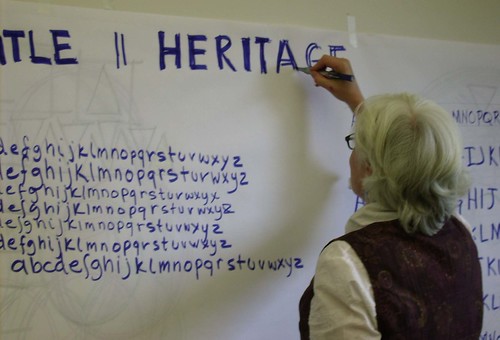 ITLE || HERITAGE
defghijklmnopqrstuvwxyz
defghijklmnopqrstuvwxyz
defghijklmnopqrstuvwxyx
defghijklmnopqrstuvwxyz
defghijklmnopqrstuvwxyz
defghijklmnopqrstuvwxyz
abcdefghijklmnopqrstuvwxyz
MNOPQR
GHIJ